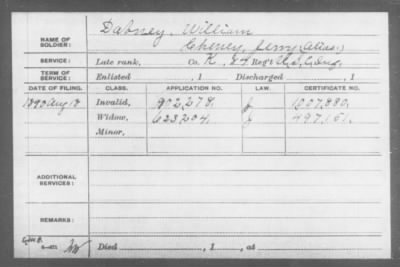 Dabney, William
NAME OF SOLDIER:
Cheney, Jerry (Alias.)
SERVICE: Late rank, Co. K, Reg't U.S.C. Inf.
TERM OF SERVICE: Enlisted , 1 Discharged , 1
DATE OF FILING. CLASS. APPLICATION NO. LAW. CERTIFICATE NO.
1890 Aug 18 Invalid, 902,278. J 1007,880.
Widow, 623204. J 497,151.
Minor,
ADDITIONAL SERVICES:
REMARKS:
Died , 1 , at